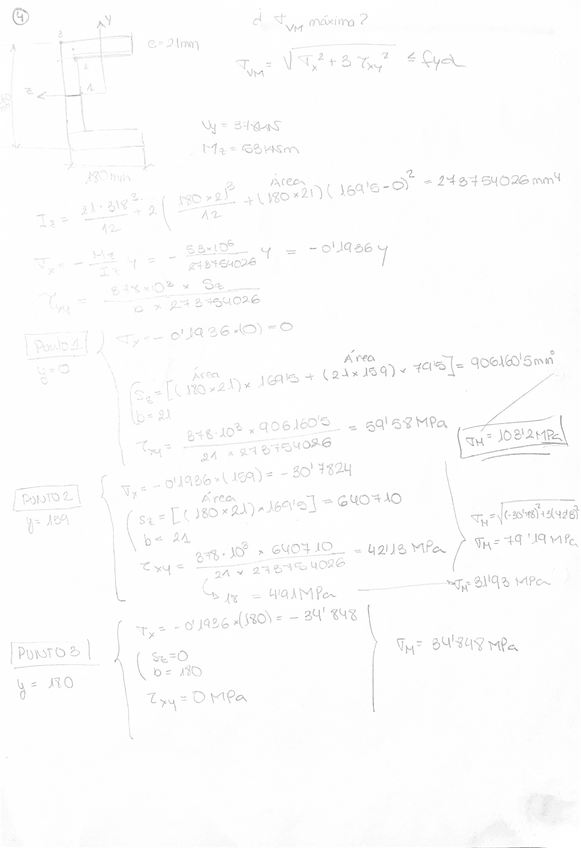 4
¿ σVM máxima?
Y
3
e=21mm
2
z
1
σVM = √(σx² + 3 τxy²) ≤ fyd
Vy = 378kN
Mz = 53kNm
180mm
Área
Iz = 21·318³/12 + 2 (180×21³/12 + (180×21)(169'5-0)² = 273754026mm⁴
σx = - Mz/Iz y = - 53×10⁶/273754026 y = -0'1936y
τxy = 378×10³ × Sz / b × 273754026
PUNTO 1
y=0
σx = -0'1936·(0) = 0
Área Área
Sz = [(180×21)×169'5 + (21×159)×79'5] = 906160'5mm³
b=21
τxy = 378·10³ × 906160'5 / 21 × 273754026 = 59'58MPa
σM = 103'2MPa
PUNTO 2
y=159
σx = -0'1936×(159) = -30'7824
Área
Sz = [(180×21)×169'5] = 640710
b = 21
τxy = 378·10³ × 640710 / 21 × 273754026 = 42'13 MPa
18 = 4'91MPa
σM = 79'19MPa
σM = 31'93 MPa
PUNTO 3
y = 180
σx = -0'1936×(180) = -34'848
Sz=0
b=180
τxy = 0MPa
σM = 34'848MPa